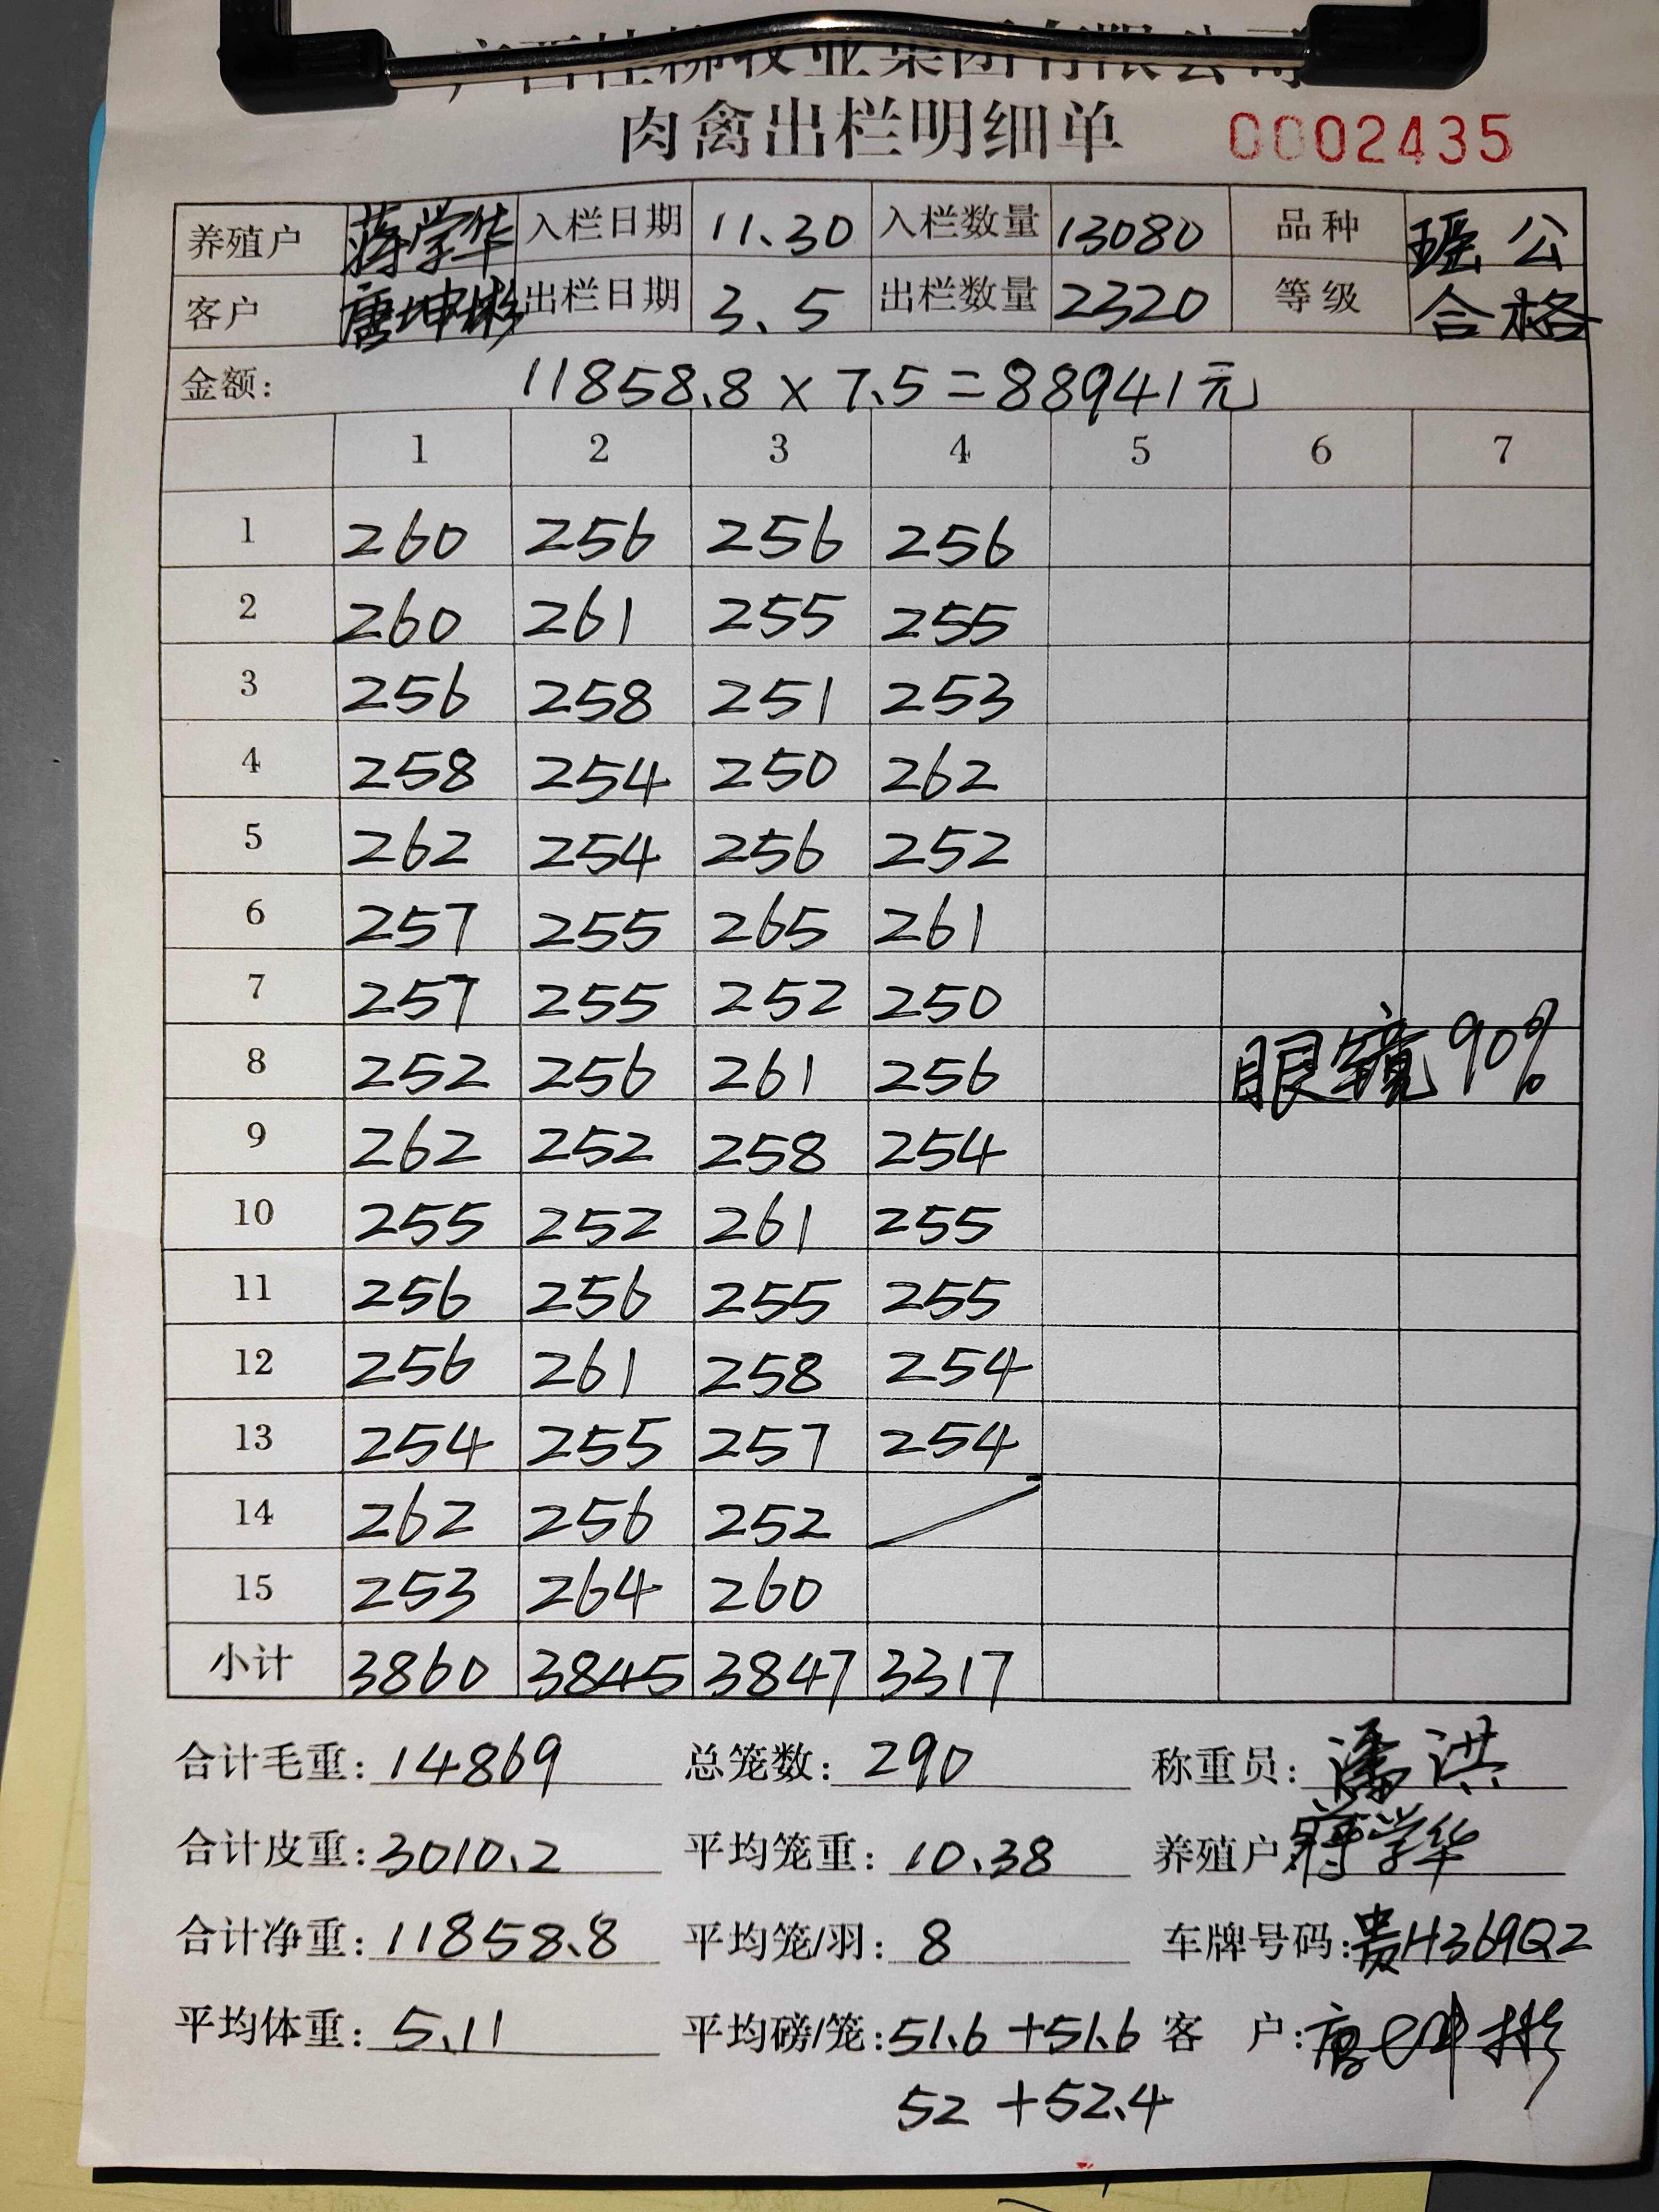 肉禽出栏明细单 0002435
养殖户 蒋学华 入栏日期 11.30 入栏数量 13080 品种 瑶公
客户 唐坤彬 出栏日期 3.5 出栏数量 2320 等级 合格
金额: 11858.8 × 7.5 = 88941元
1 2 3 4 5 6 7
1 260 256 256 256
2 260 261 255 255
3 256 258 251 253
4 258 254 250 262
5 262 254 256 252
6 257 255 265 261
7 257 255 252 250
8 252 256 261 256 眼镜90%
9 262 252 258 254
10 255 252 261 255
11 256 256 255 255
12 256 261 258 254
13 254 255 257 254
14 262 256 252
15 253 264 260
小计 3860 3845 3847 3317
合计毛重: 14869 总笼数: 290 称重员: 潘洪
合计皮重: 3010.2 平均笼重: 10.38 养殖户 蒋学华
合计净重: 11858.8 平均笼/羽: 8 车牌号码: 贵H369Q2
平均体重: 5.11 平均磅/笼: 51.6 + 51.6 客户: 唐坤彬
52 + 52.4